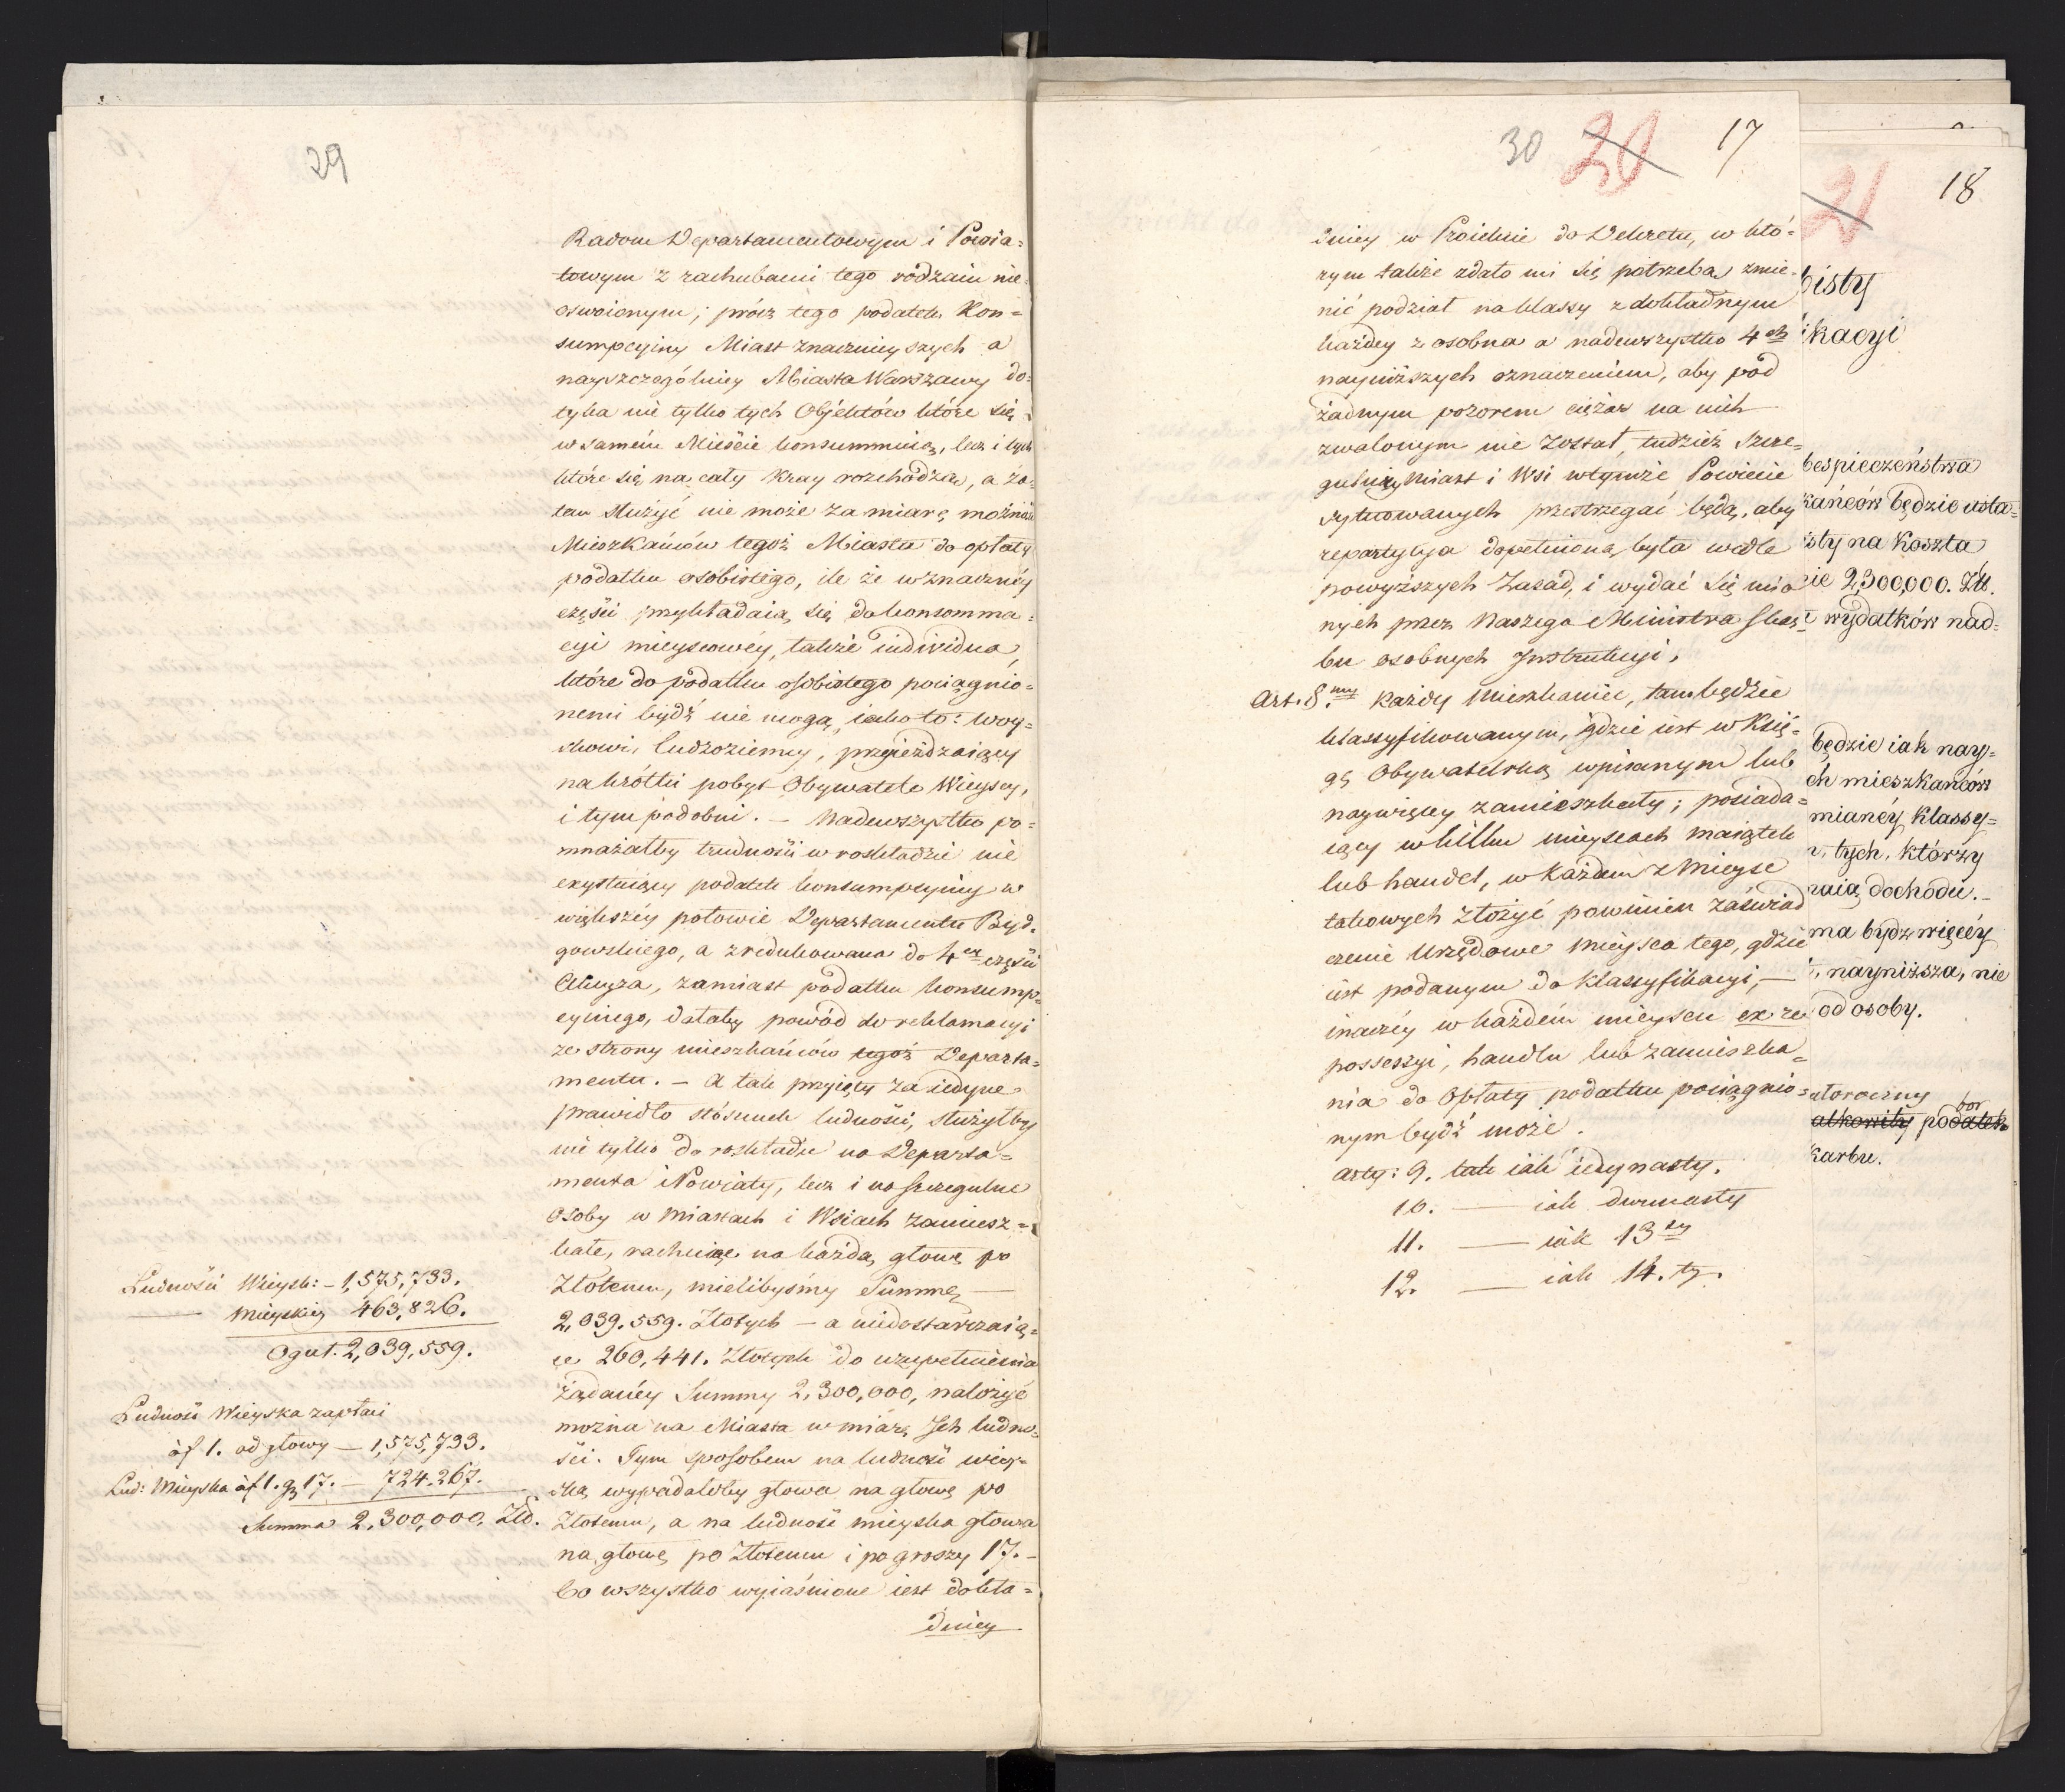 29
Radom Departamentowym i Powia=
towym z rachubami tego rodzaiu nie=
oswoionym; prócz tego podatek Kon=
sumpcyiny Miast znacznieyszych a
nayszczególniey Miasta Warszawy do=
tyka nie tylko tych Objektów które się
w samém Mieście konsummuią, lecz i tych
które się na cały Kray rozchodzą, a za=
tem służyć nie może za miarę możności
Mieszkańców tegoż Miasta do opłaty
podatku osobistego, ile że w znacznéy
części przykładaią się do konsomma=
cyi mieyscowéy, także individua,
które do podatku osobistego pociągnio=
nemi bydź nie mogą, iako to: Woy=
skowi, Cudzoziemcy, przyieżdzaiący
na krótki pobyt Obywatele Wieyscy,
i tym podobni. — Nadewszystko po=
mnażałby trudności w rozkładzie nie
exystuiący podatek konsumpcyiny w
większéy połowie Departamentu Byd=
gowskiego, a zredukowana do 4ey części
Akcyza, zamiast podatku konsump=
cyinego, dałaby powód do reklamacyi
ze strony mieszkańców tegoż Departa=
mentu. — A tak przyięty za iedyne
prawidło stósunek ludności, służyłby
nie tylko do rozkładu na Departa=
menta i Powiaty, lecz i na szczegulne
Osoby w Miastach i Wsiach zamiesz=
kałe, rachuiąc na każdą głowę po
Złotemu, mielibyśmy Summę —
2,039.559. Złotych — a niedostarczaią=
ce 260,441. Złotych do uzupełnienia
żądanéy Summy 2,300,000, nałożyć
można na Miasta w miarę Ich ludno=
ści. Tym sposobem na ludność wiey=
ską wypadałoby głowa na głowę po
Złotemu, a na ludność mieyską głowa
na głowę po Złotemu i po groszy 17. —
Co wszystko wyiaśnione iest dokła=
dniey
Ludności Wieysk: — 1,575,733.
— Mieyskiey 463,826.
Oguł. 2,039,559.
Ludność Wieyska zapłaci
à f 1. od głowy — 1,575,733.
Lud: Mieyska à f 1. g 17. — 724.267.
Summa 2,300,000. Złł.
30 20 17
dniey w Proiekcie do Dekretu, w któ=
rym także zdało mi się potrzeba zmie=
nić podział na klassy z dokładnym
każdey z osobna a nadewszystko 4ch
nayniższych oznaczeniem, aby pod
żadnym pozorem ciężar na nich
zwalonym nie został, tudzież szcze=
gulniey Miast i Wsi w tymże Powiecie
sytuowanych przestrzegać będą, aby
repartycya dopełnioną była wedle
powyższych Zasad, i wydać się maią=
nych przez Naszego Ministra Skar=
bu osobnych Instrukcyi.
Art. 8.my Każdy Mieszkaniec, tam będzie
klassyfikowanym, gdzie iest w Księ=
gę Obywatelską wpisanym lub
naywięcey zamieszkały; posiada=
iący w kilku mieyscach maiątek
lub handel, w każdém z Mieysc
takowych złożyć powinien zaświad
czenie Urzędowe Mieysca tego, gdzie
iest podanym do Klassyfikacyi, —
inaczéy w każdém mieyscu ex re
possessyi, handlu lub zamieszka=
nia do Opłaty podatku pociągnio=
nym bydź może.
Arty: 9. tak iak iedynasty.
10. — iak dwunasty
11. — iak 13ty
12. — iak 14.ty.
21 18
bisty
ikacyi
bespieczeństwa
kańców będzie usta=
sty na Koszta
cie 2,300,000. Złł.
i wydatków nad=
będzie iak nay=
ch mieszkańców
mianéy Klassy=
n, tych, którzy
maią dochodu. —
ma bydz więcéy
, nayniższa, nie
od osoby.
łoroczny
ałkowity podatek
bor
karbu.